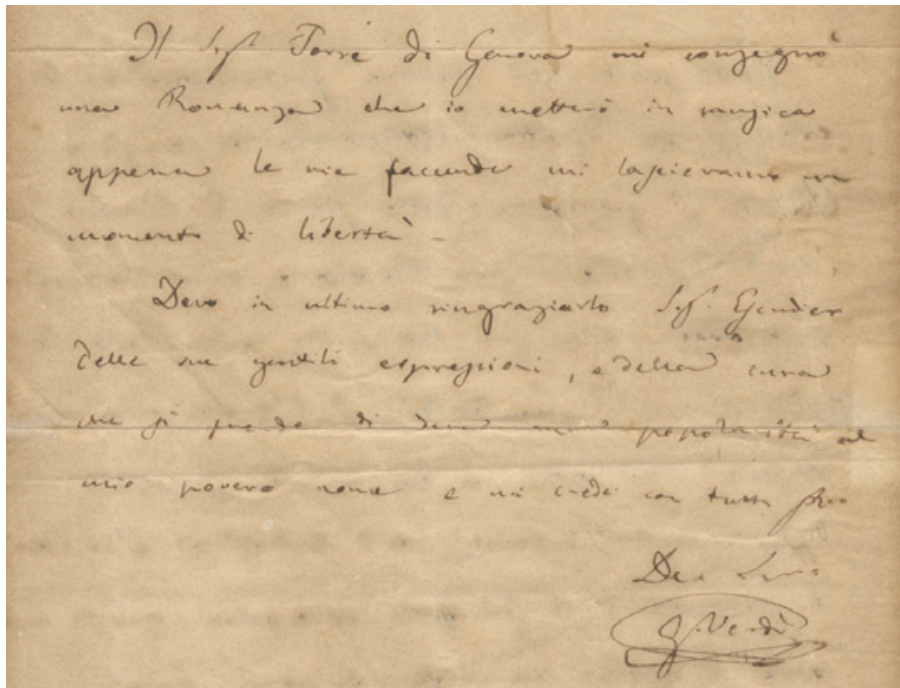 Il Sig. Torre di Genova mi consegnò
una Romanza che io metterò in musica
appena le mie faccende mi lascieranno un
momento di libertà -
Devo in ultimo ringraziarlo Sig.
delle sue gentili espressioni, e della cura
che si prende di dare popolarità al
mio povero nome e mi creda con tutta
Dev. Serv.
G. Verdi